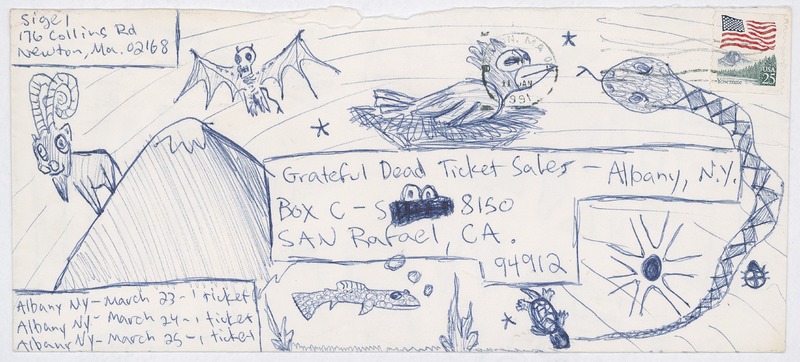 Sigel
176 Collins Rd
Newton, Ma. 02168
N, MA 0
JAN
1991
USA
25
Yosemite
Grateful Dead Ticket Sales - Albany, N.Y.
Box C - S 8150
SAN Rafael, CA.
94912
Albany NY - March 23 - 1 ticket
Albany NY - March 24 - 1 ticket
Albany NY - March 25 - 1 ticket